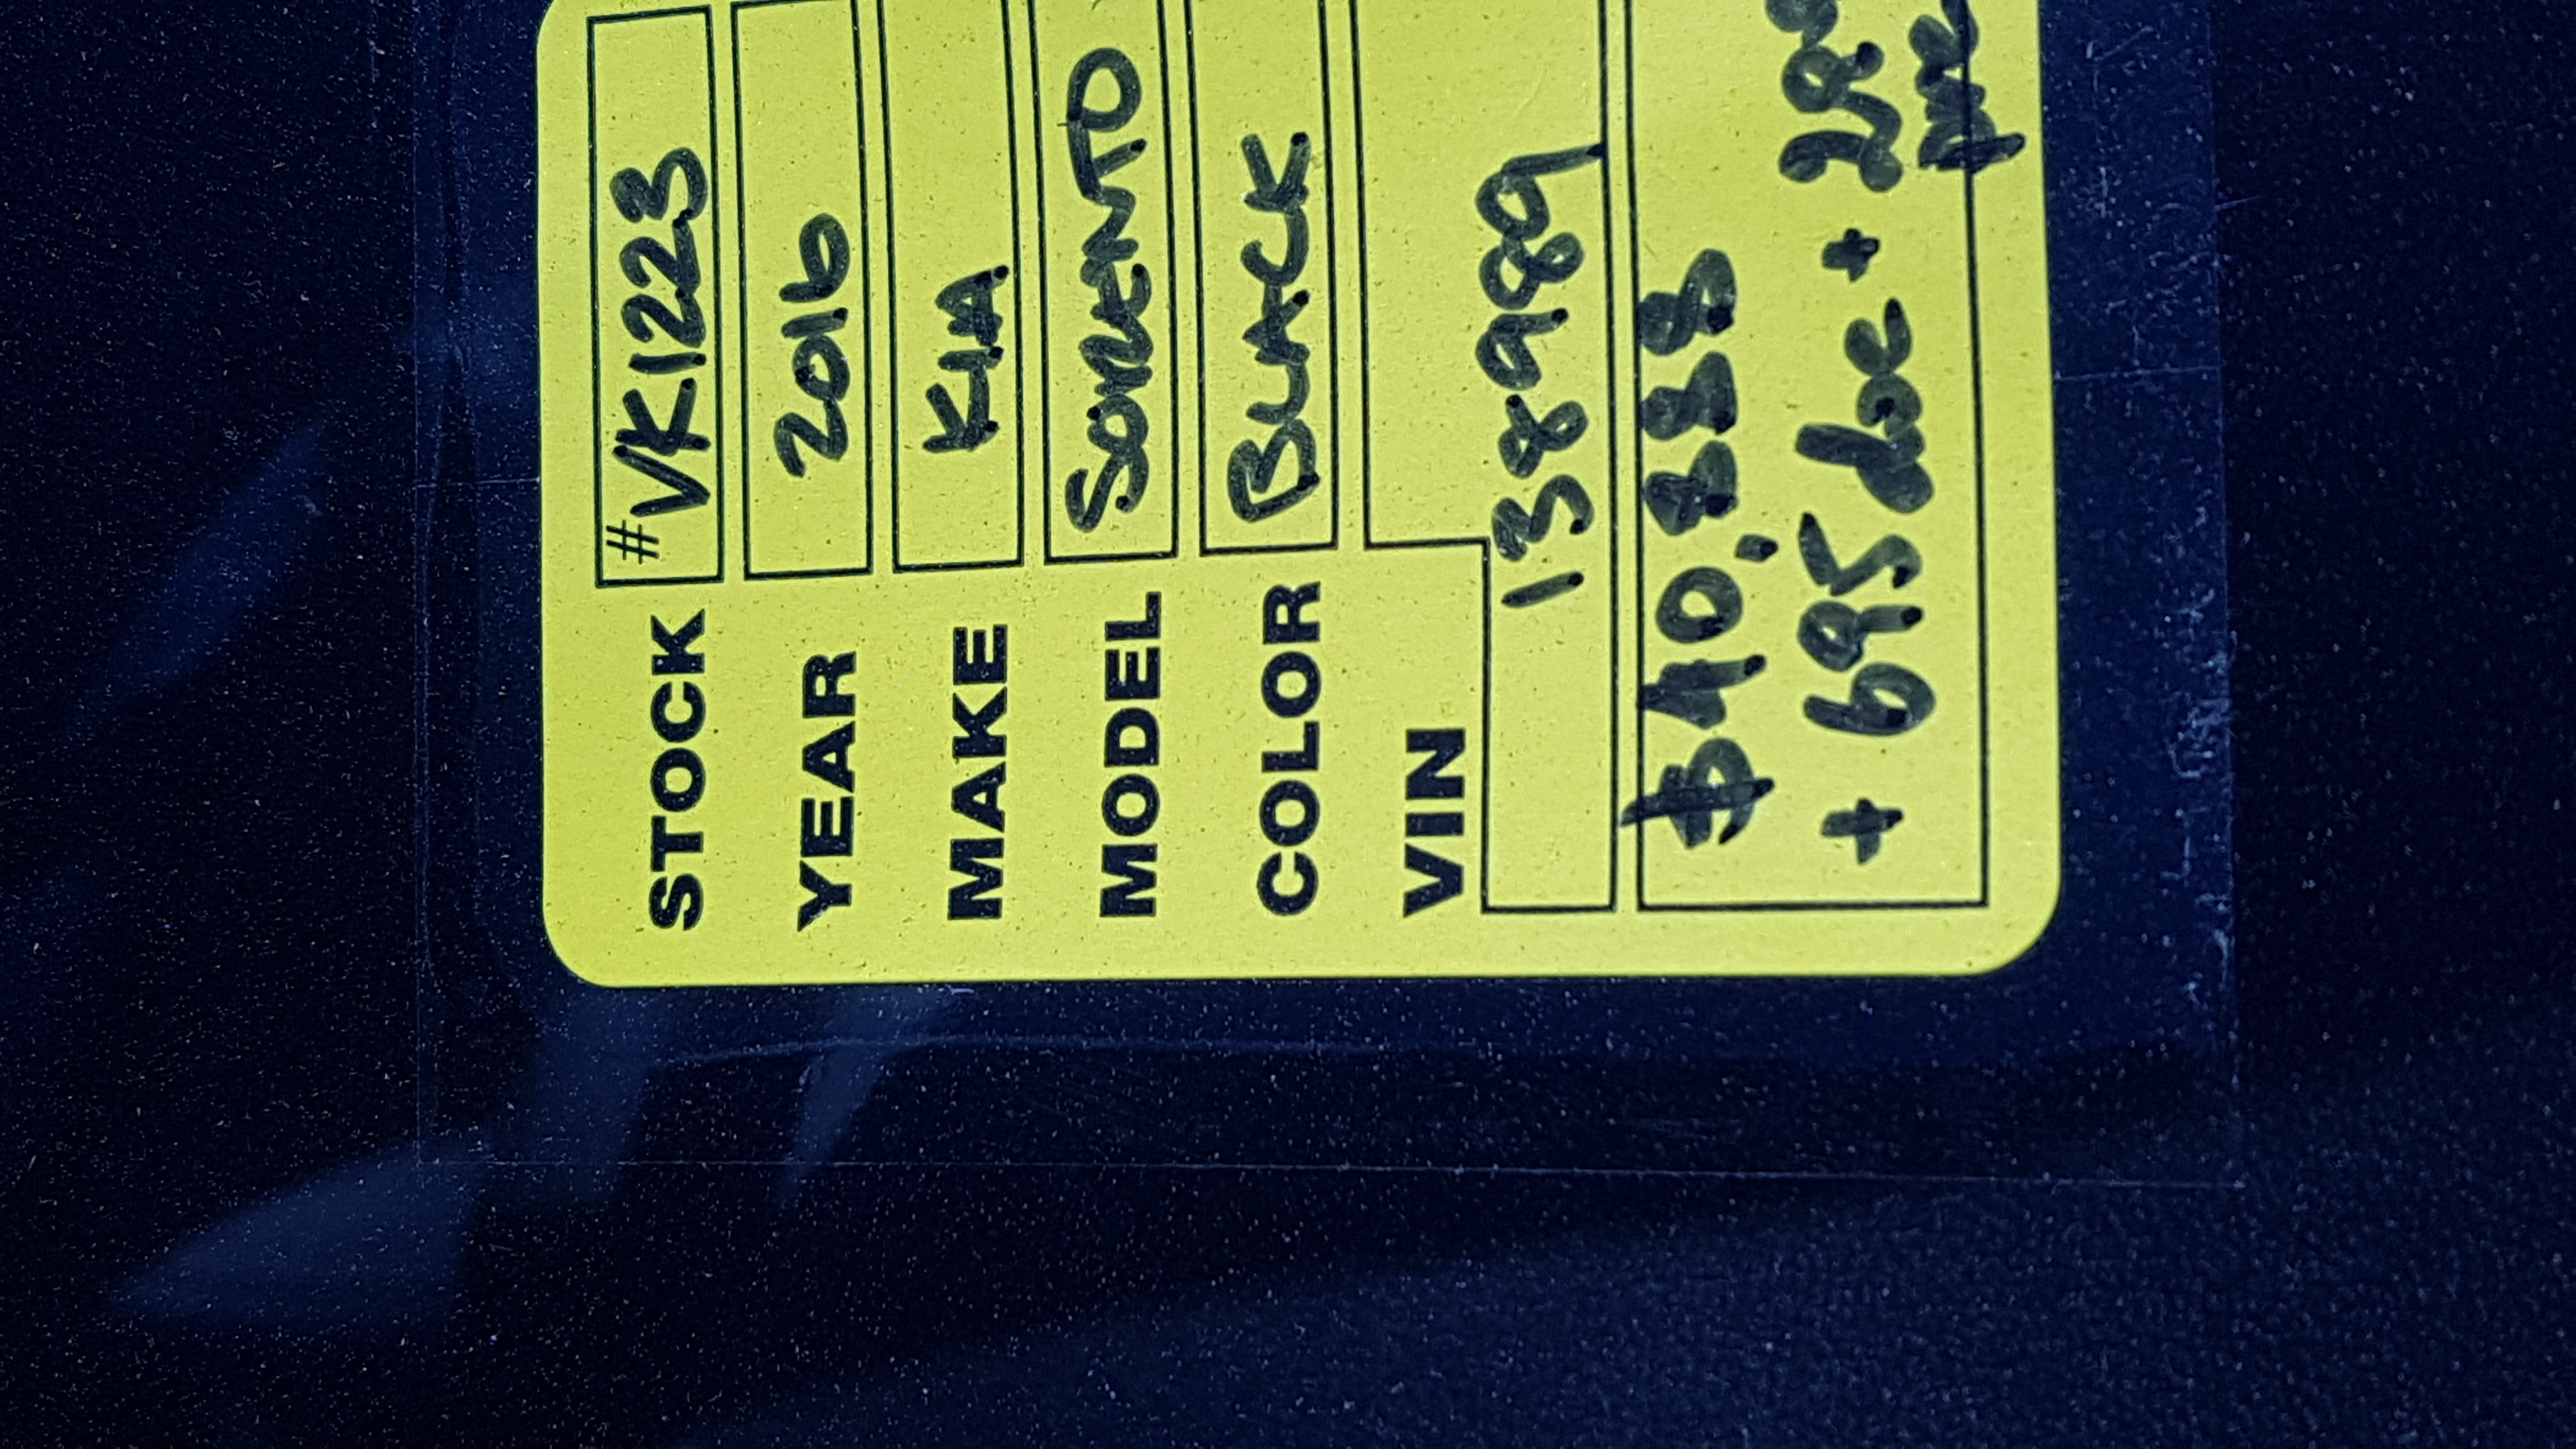 STOCK #VK1223
YEAR 2016
MAKE KIA
MODEL SORENTO
COLOR BLACK
VIN
138989
$40,888
+ 695 doc +